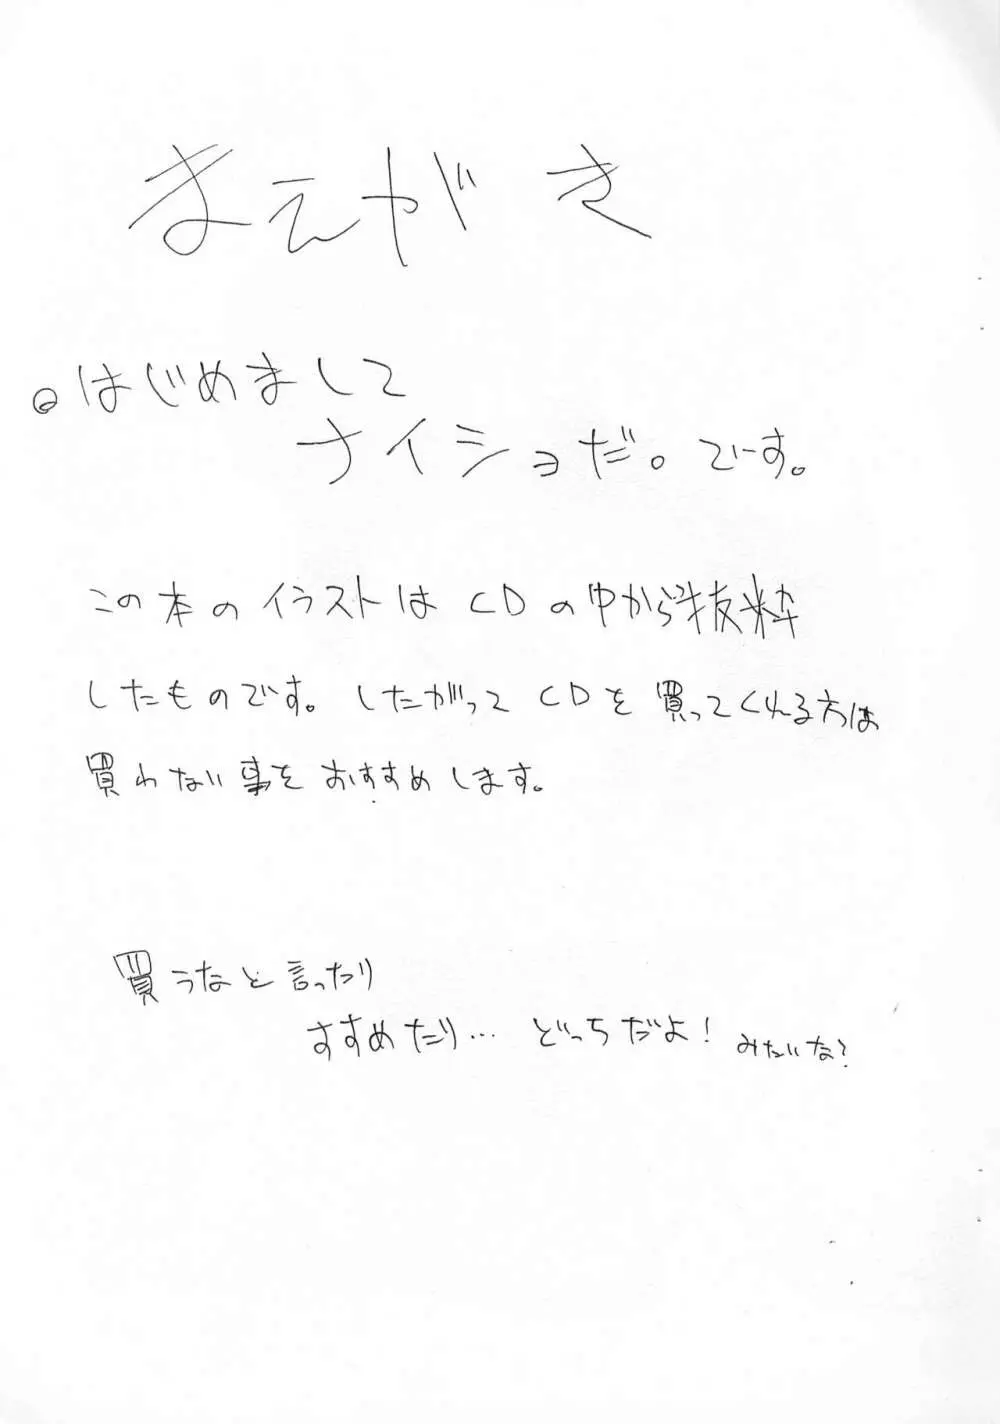 まえがき
◎はじめまして
ナイショだ。でーす。
この本のイラストは CDの中から抜粋
したものです。したがって CDを買ってくれる方は
買わない事をおすすめします。
買うなと言ったり
すすめたり… どっちだよ! みたいな?